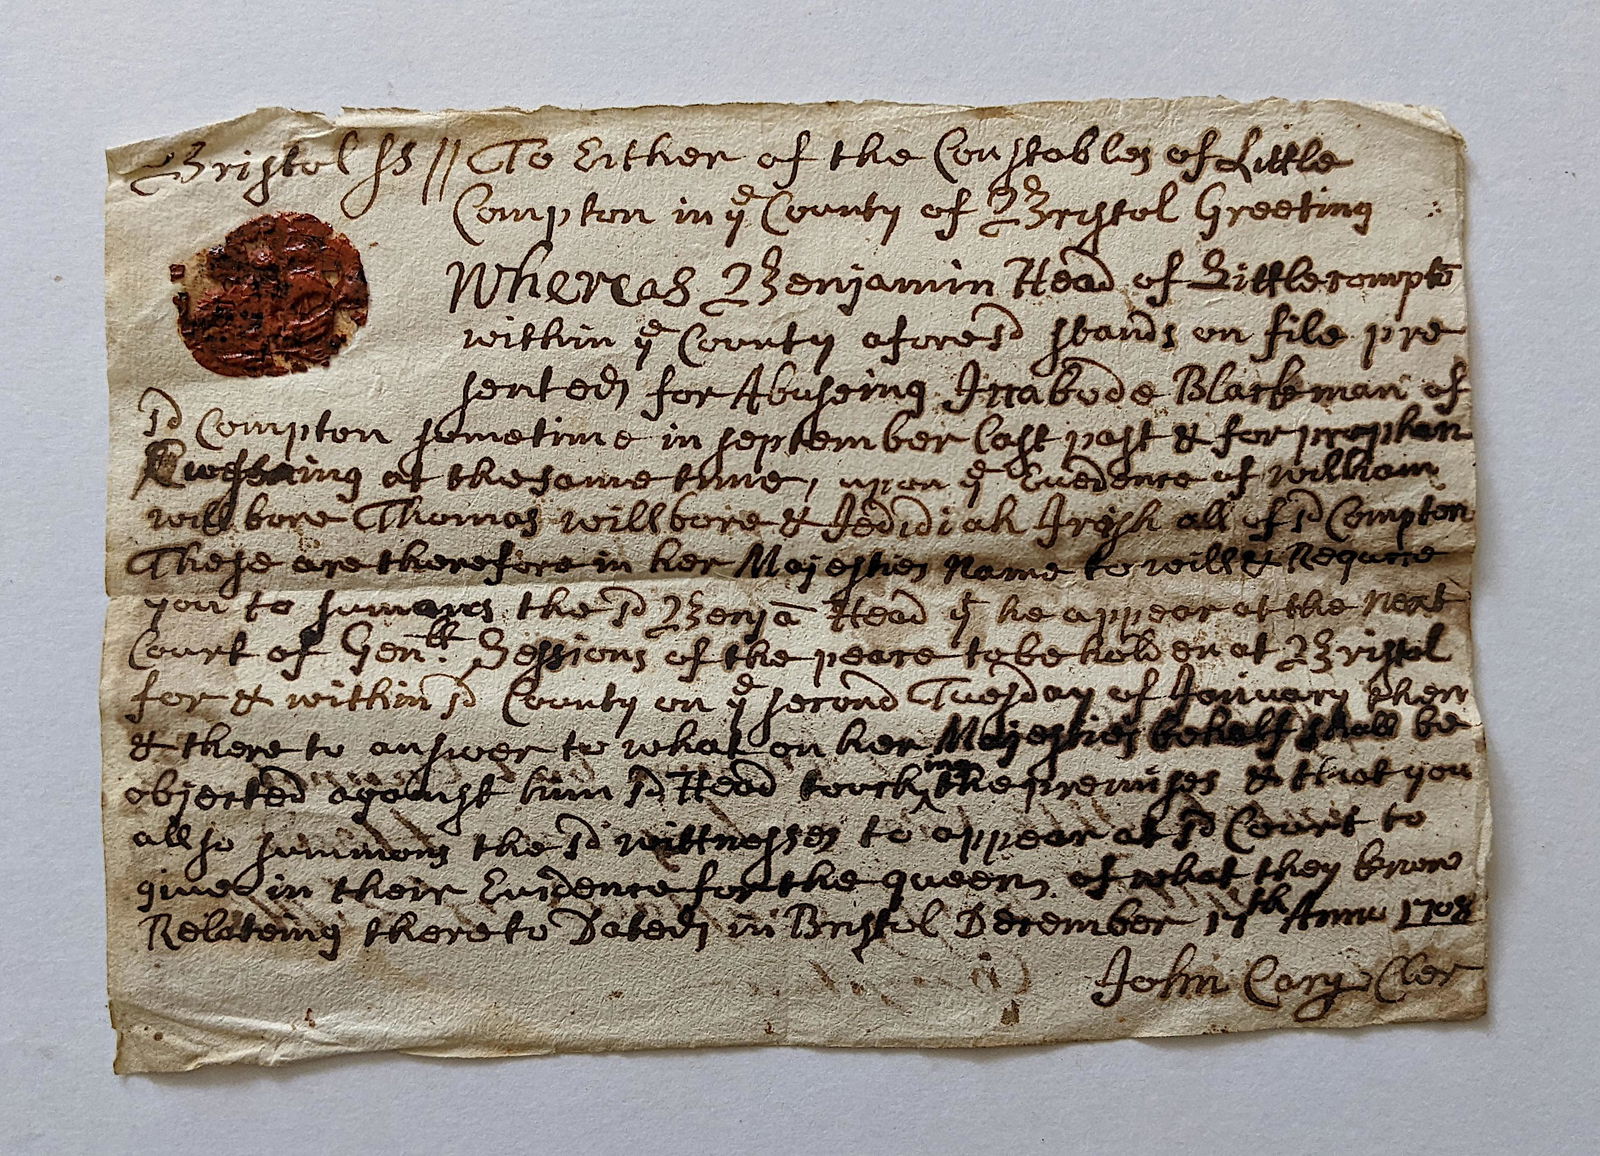 Bristol ss // To Either of the Constables of Little
Compton in yͤ County of Bristol Greeting
Whereas Benjamin Head of Littlecomptō
within yͤ County aforesd stands on file pre
sented for Abuseing Iccabode Blackman of
sd Compton sometime in september Last past & for prophan
at the same time, upon yͤ Evedence of William
willbore Thomas willbore & Jedidiah Irish all of sd Compton
These are therefore in her Majesties Name to will & Requere
you to sumons the sd Benjā Head yͭ he appear at the next
Court of Genˡˡ Sessions of the peace to be holden at Bristol
for & within sd County on yͤ second Tuesday of January then
& there to answer to what on her Majesties behalf shall be
objected against him sd Head touching the premises & that you
allso summons the sd wittnesses to appear at sd Court to
give in their Evidence for the queen of what they know
Relateing thereto Dated in Bristol December 17th Anno 1708
John Cary Cler